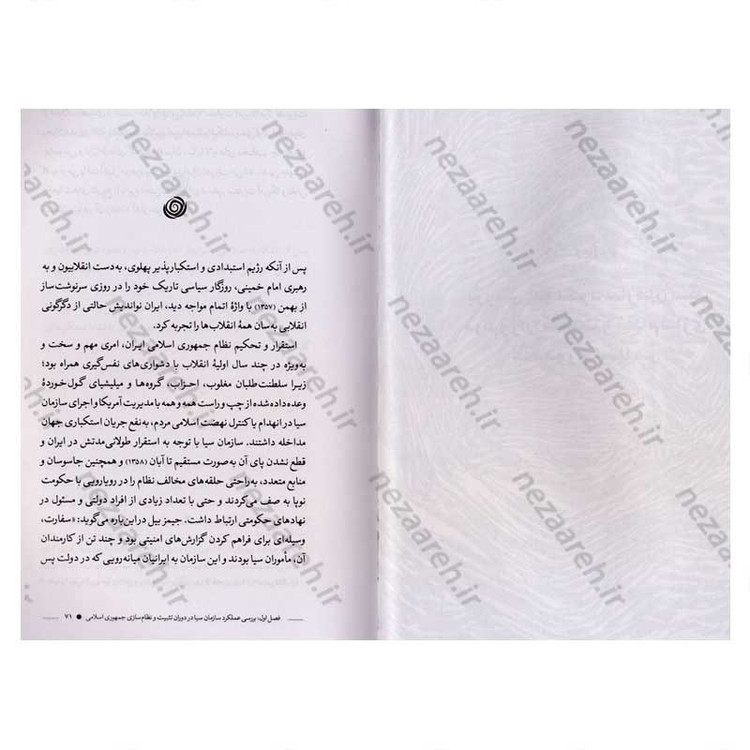 پس از آنکه رژیم استبدادی و استکبارپذیر پهلوی، به‌دست انقلابیون و به
رهبری امام خمینی، روزگار سیاسی تاریک خود را در روزی سرنوشت‌ساز
از بهمن (۱۳۵۷) با واژهٔ اتمام مواجه دید، ایران نواندیش حالتی از دگرگونی
انقلابی به‌سان همهٔ انقلاب‌ها را تجربه کرد.
استقرار و تحکیم نظام جمهوری اسلامی ایران، امری مهم و سخت و
به‌ویژه در چند سال اولیهٔ انقلاب با دشواری‌های نفس‌گیری همراه بود؛
زیرا سلطنت‌طلبان مغلوب، احزاب، گروه‌ها و میلیشیای گول‌خوردهٔ
وعده‌داده‌شده از چپ و راست همه و همه با مدیریت آمریکا و اجرای سازمان
سیا در انهدام یا کنترل نهضت اسلامی مردم، به‌نفع جریان استکباری جهان
مداخله داشتند. سازمان سیا با توجه به استقرار طولانی‌مدتش در ایران و
قطع نشدن پای آن به‌صورت مستقیم تا آبان (۱۳۵۸) و همچنین جاسوسان و
منابع متعدد، به‌راحتی حلقه‌های مخالف نظام را در رویارویی با حکومت
نوپا به صف می‌کردند و حتی با تعداد زیادی از افراد دولتی و مسئول در
نهادهای حکومتی ارتباط داشت. جیمز بیل در این‌باره می‌گوید: «سفارت،
وسیله‌ای برای فراهم کردن گزارش‌های امنیتی بود و چند تن از کارمندان
آن، مأموران سیا بودند و این سازمان به ایرانیان میانه‌رویی که در دولت پس
فصل اول: بررسی عملکرد سازمان سیا در دوران تثبیت و نظام‌سازی جمهوری اسلامی ● ۷۱
nezaareh.ir
nezaareh.ir
nezaareh.ir
nezaareh.ir
nezaareh.ir
nezaareh.ir
nezaareh.ir
nezaareh.ir